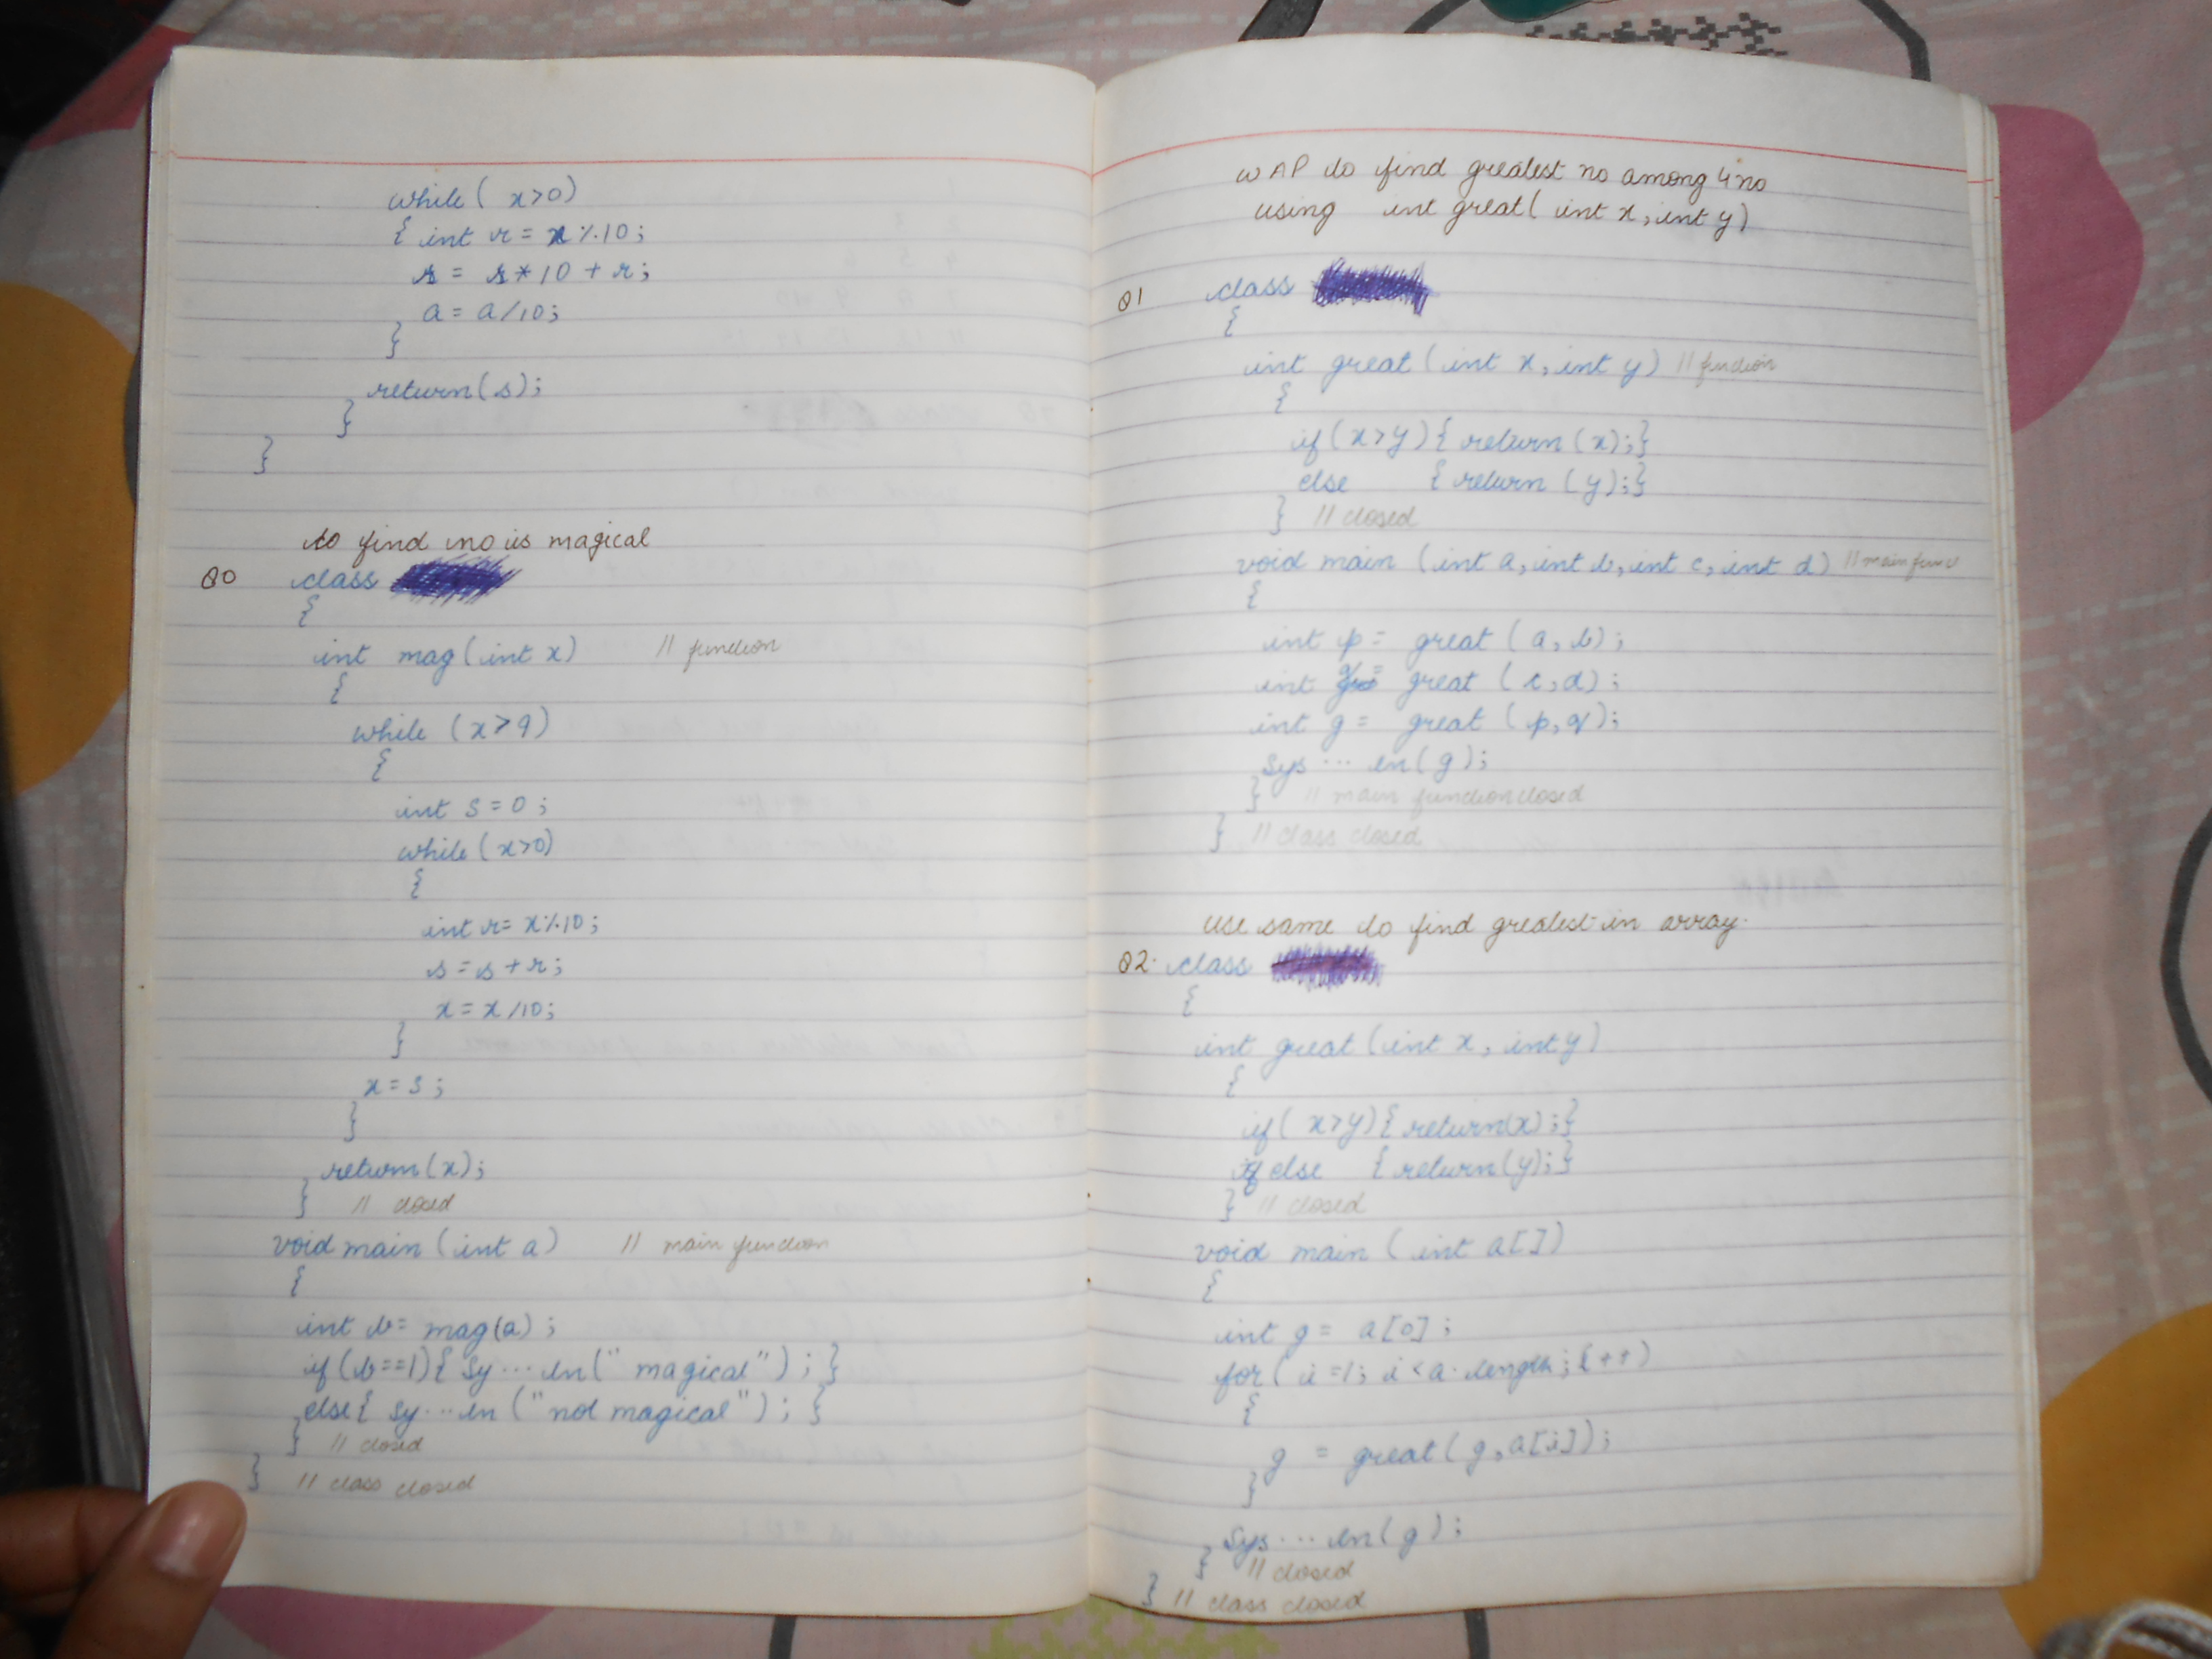 while ( x>0)
{ int r = x%10;
s = s*10 + r;
a = a/10;
}
return(s);
}
}
to find no is magical
Q0 class
{
int mag(int x) // function
{
while (x>9)
{
int s=0;
while (x>0)
{
int r= x%10;
s=s+r;
x= x/10;
}
x=s;
}
return(x);
} // closed
void main (int a) // main function
{
int b= mag(a);
if(b==1){ Sy...ln(" magical"); }
else{ Sy...ln ("not magical"); }
} // closed
} // class closed
WAP to find greatest no among 4 no
using int great( int x, int y)
Q1 class
{
int great (int x, int y) // function
{
if(x>y){ return (x);}
else { return (y);}
} // closed
void main (int a, int b, int c, int d) // main func
{
int p= great (a, b);
int q= great (c,d);
int g= great (p, q);
Sys... ln(g);
} // main function closed
} // class closed
Use same to find greatest in array.
Q2. class
{
int great (int x, int y)
{
if( x>y){ return(x);}
else { return(y);}
} // closed
void main ( int a[])
{
int g= a[0];
for( i=1; i<a.length; i++)
{
g = great(g,a[i]);
}
Sys... ln(g);
} // closed
} // class closed